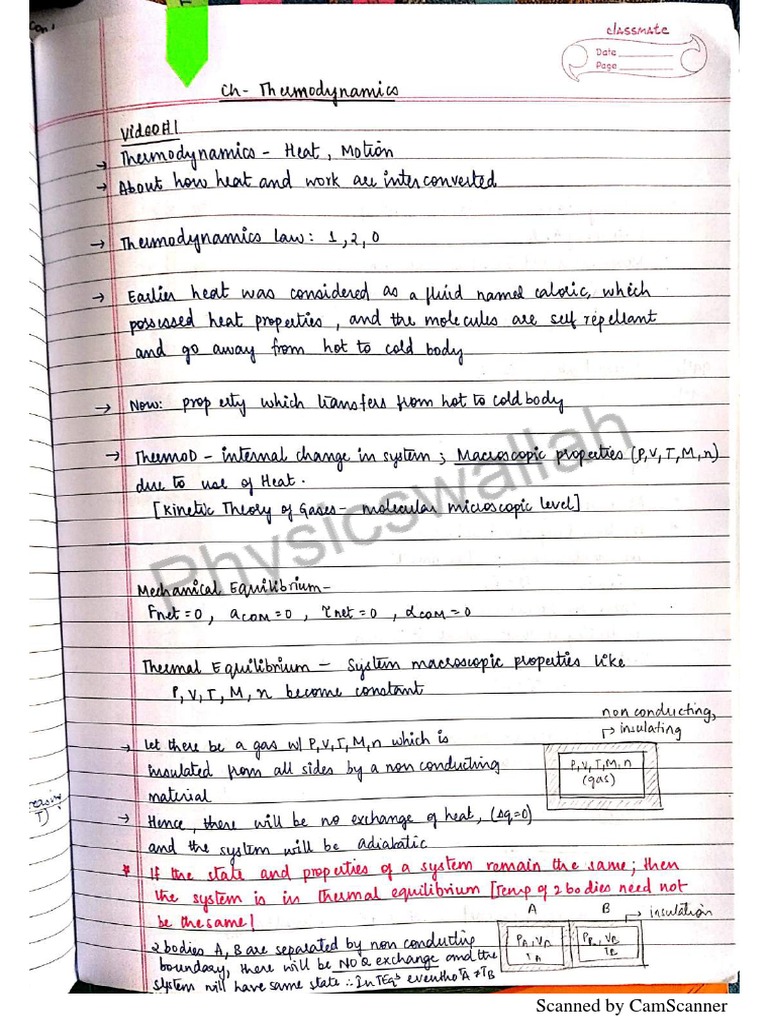 classmate
Date
Page
Ch- Thermodynamics
Video#1
→ Thermodynamics - Heat, Motion
→ About how heat and work are interconverted
→ Thermodynamics Law: 1, 2, 0
→ Earlier heat was considered as a fluid named caloric, which
possessed heat properties, and the molecules are self repellant
and go away from hot to cold body
→ Now: property which transfers from hot to cold body
→ ThermoD - internal change in system; Macroscopic properties (P,V,T,M,n)
due to use of Heat.
[Kinetic Theory of Gases- molecular microscopic level]
Physicswallah
Mechanical Equilibrium-
Fnet=0, aCOM=0, τnet=0, αCOM=0
Thermal Equilibrium - System macroscopic properties like
P,V,T,M,n become constant
non conducting,
→ insulating
→ Let there be a gas w/ P,V,T,M,n which is
insulated from all sides by a non conducting
material
P,V,T,M,n
(gas)
→ Hence, there will be no exchange of heat, (Δq=0)
and the system will be adiabatic
* If the state and properties of a system remain the same; then
the system is in Thermal equilibrium [Temp of 2 bodies need not
be the same!
A B → insulation
PA, VA
TA
PB, VB
TB
2 bodies A, B are separated by non conducting
boundary, there will be NO exchange and the
system will have same state ∴ In TEq^b eventho TA≠TB
Scanned by CamScanner